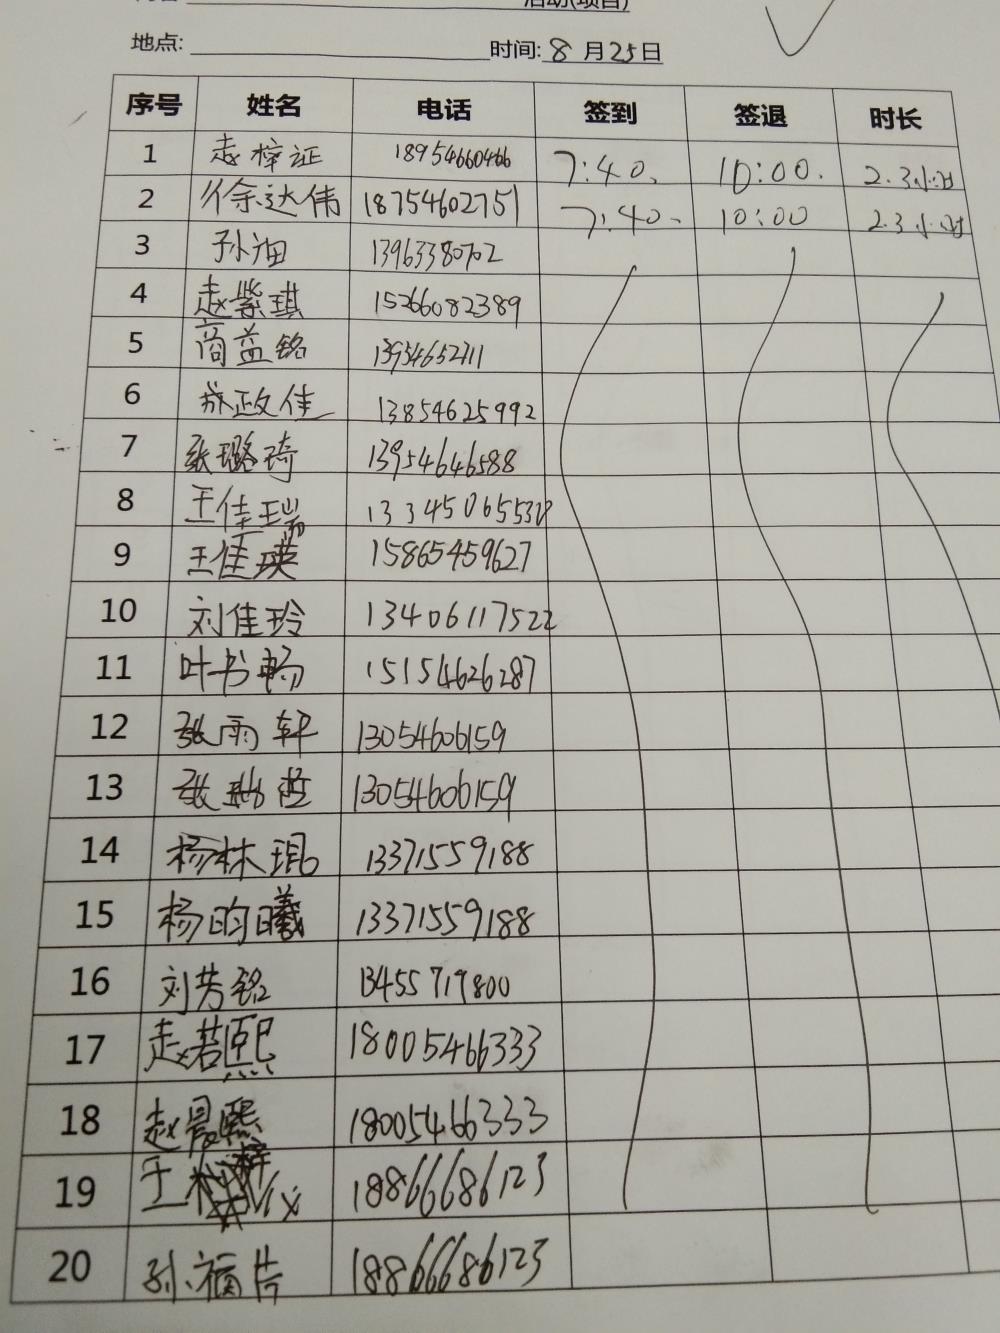 活动(项目)
地点: 时间: 8 月 25 日
序号 姓名 电话 签到 签退 时长
1 赵梓证 18954660466 7:40. 10:00. 2.3小时
2 徐达伟 18754602751 7:40. 10:00 2.3小时
3 孙 13963380702
4 赵紫琪 15266082389
5 商益铭
6 政佳 13854625992
7 张璐琦 13954646588
8 王佳瑞
9 王佳瑛 15865459627
10 刘佳玲 13406117522
11 叶书畅 15154626287
12 张雨轩 13054606159
13 张 哲 13054606159
14 杨林琨 13371559188
15 杨昀曦 13371559188
16 刘芳铭 13455719800
17 赵若熙 18005466333
18 赵晨熙 18005466333
19 王 梓 18866686123
20 孙福 18866686123